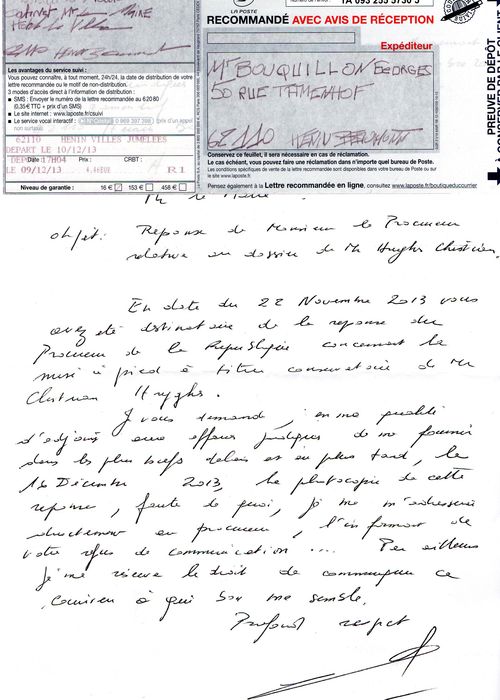 Numéro de l'envoi : 1A 093 255 5730 3
LA POSTE
RECOMMANDÉ AVEC AVIS DE RÉCEPTION
Expéditeur
Mr BOUQUILLON GEORGES
50 RUE TAMENHOF
62110 HENIN BEAUMONT
Conservez ce feuillet, il sera nécessaire en cas de réclamation.
Le cas échéant, vous pouvez faire une réclamation dans n'importe quel bureau de Poste.
Les conditions spécifiques de vente de la lettre recommandée sont disponibles dans votre bureau de Poste ou sur le site www.laposte.fr
Pensez également à la Lettre recommandée en ligne, consultez www.laposte.fr/boutiqueducourrier
PREUVE DE DÉPÔT
Les avantages du service suivi :
Vous pouvez connaître, à tout moment, 24h/24, la date de distribution de votre
lettre recommandée ou le motif de non-distribution.
3 modes d'accès direct à l'information de distribution :
SMS : Envoyer le numéro de la lettre recommandée au 6 20 80
(0,35 € TTC + prix d'un SMS)
Le site internet : www.laposte.fr/csuivi
Le service vocal interactif :
62110 HENIN VILLES JUMELEES
DEPART LE 10/12/13
Date : 17H04 Prix : CRBT :
LE 09/12/13 R1
Niveau de garantie : 16 € 153 € 458 €
Mr le Maire
objet: Reponse de Monsieur le Procureur
relative au dossier de Mr Hughs Christian.
En date du 22 Novembre 2013 vous
avez été destinataire de la reponse du
Procureur de la Republique concernant la
mise à pied à titre conservatoire de Mr
Christian Hryghs.
Je vous demande, en ma qualité
d'adjoint aux affaires juridiques de me fournir
dans les plus brefs delais et au plus tard, le
16 Décembre 2013, la photocopie de cette
reponse, faute de quoi, je me m'adresserai
directement au procureur, l'informant de
votre refus de communication .... Par ailleurs
Je me réserve le droit de communiquer ce
courrier à qui bon me semble.
Profond respect